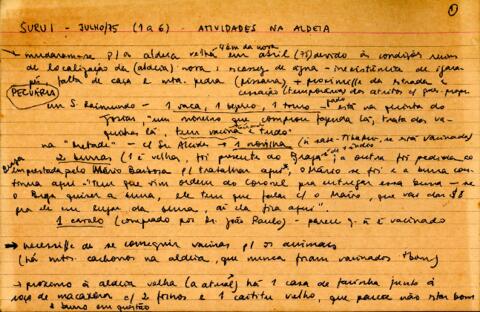 ①
SURUI - JULHO/75 (1 a 6) - ATIVIDADES NA ALDEIA
4 km da nova
→ mudaram-se p/ a aldeia velha em abril (75) devido às condições ruins
de localização da (aldeia) nova: escassez de água - inexistência de igara-
pé, falta de caça e mta. pedra + proximidade da estrada e
PECUÁRIA
cessação (temporária) dos atritos c/ prop.
gado
em S. Raimundo - 1 vaca, 1 bezerro, 1 touro está na quinta do
"um moreno que comprou fazenda lá, trata das va-
quinhas lá, tem vacina e tudo"
na "Metade" - c/ Sr. Alcides → 1 novilha (ñ sabe se está vacinada)
2 burras (1 é velha, foi presente do Braga; a outra foi pedida
emprestada pelo Mário Barbosa p/ trabalhar aqui, o Mário se foi e a burra con-
tinua aqui "Tem que vim ordem do coronel pra entregar essa burra - se
o Braga quiser a burra, ele tem que falá c/ o Mário, que vai dar $$
pra ele em lugar da burra, aí ela fica aqui".
1 cavalo (comprado por Dr. João Paulo) - parece q. ñ é vacinado
→ necessid. de se conseguir vacinas p/ os animais
(há mtos. cachorros na aldeia, que nunca foram vacinados tbém)
→ próximo à aldeia velha (a atual) há 1 casa de farinha junto à
roça de macaxera c/ 2 fornos e 1 caititu velho, que parece não está bom
2 burros em questão